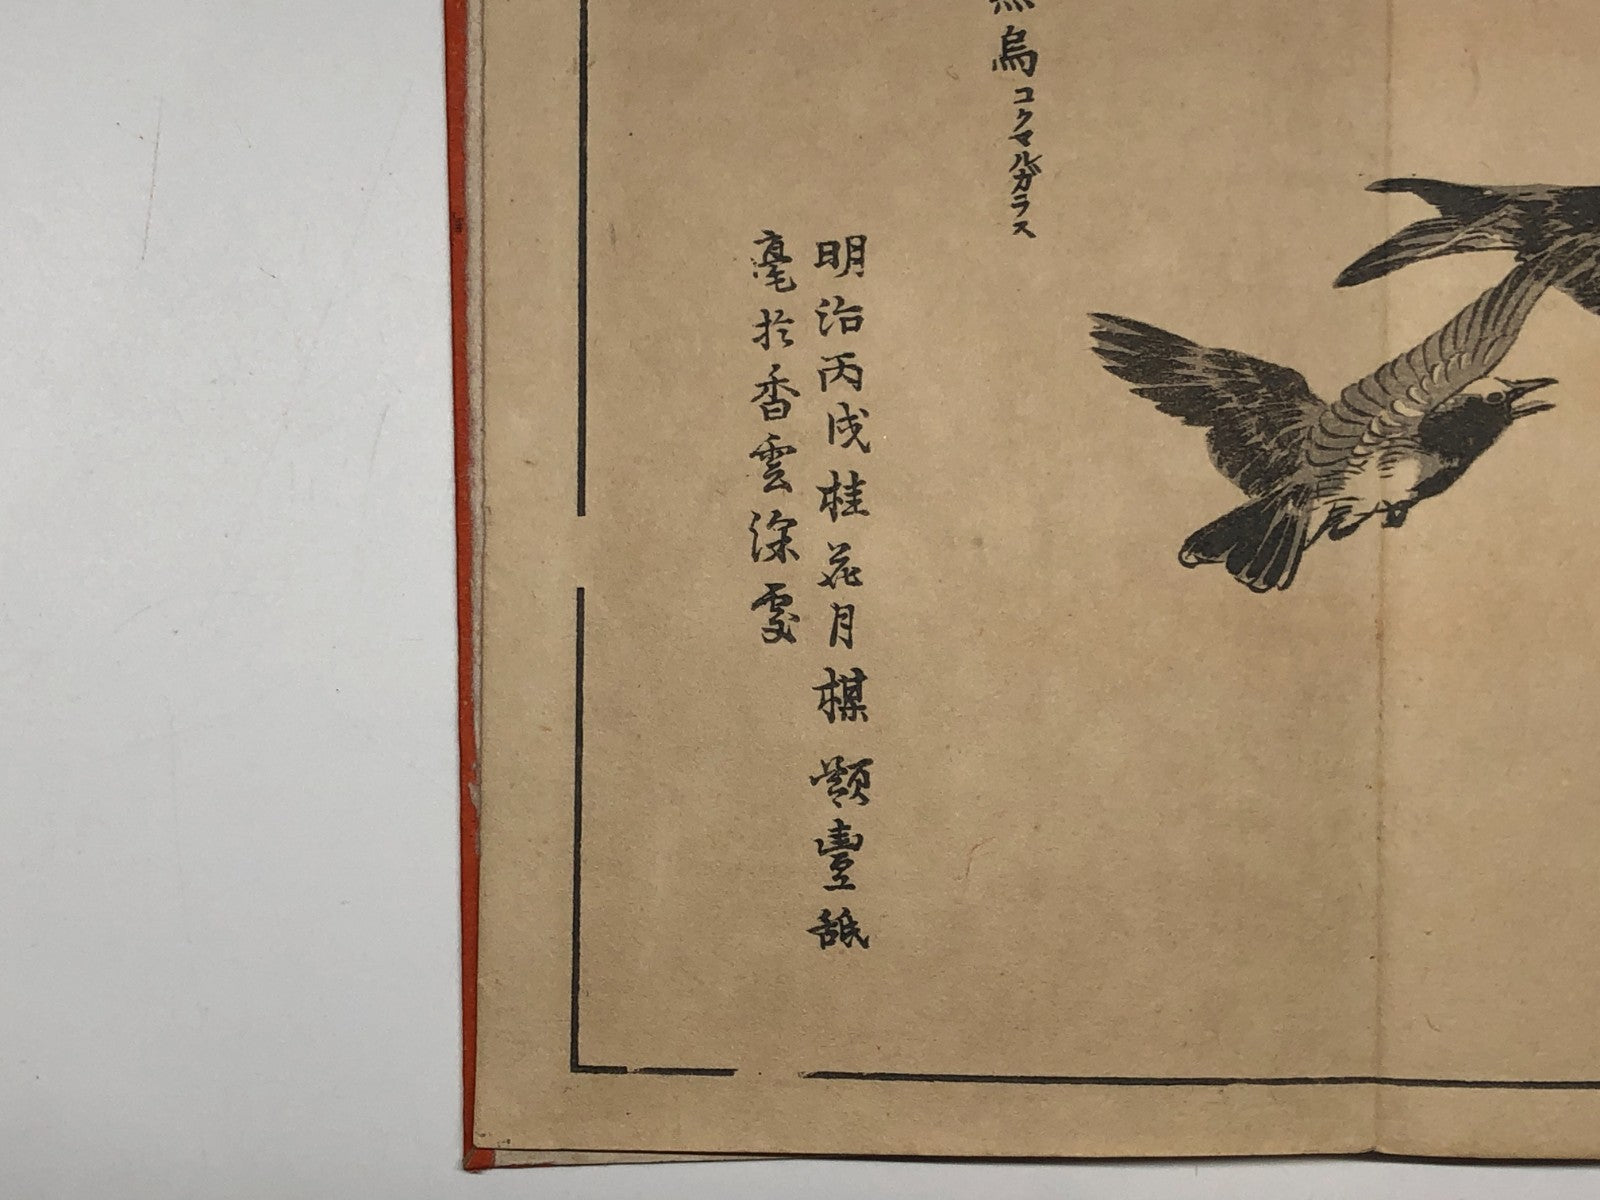 烏 コクマルガラス
明治丙戌桂花月楳嶺豊䑛
毫於香雲深處